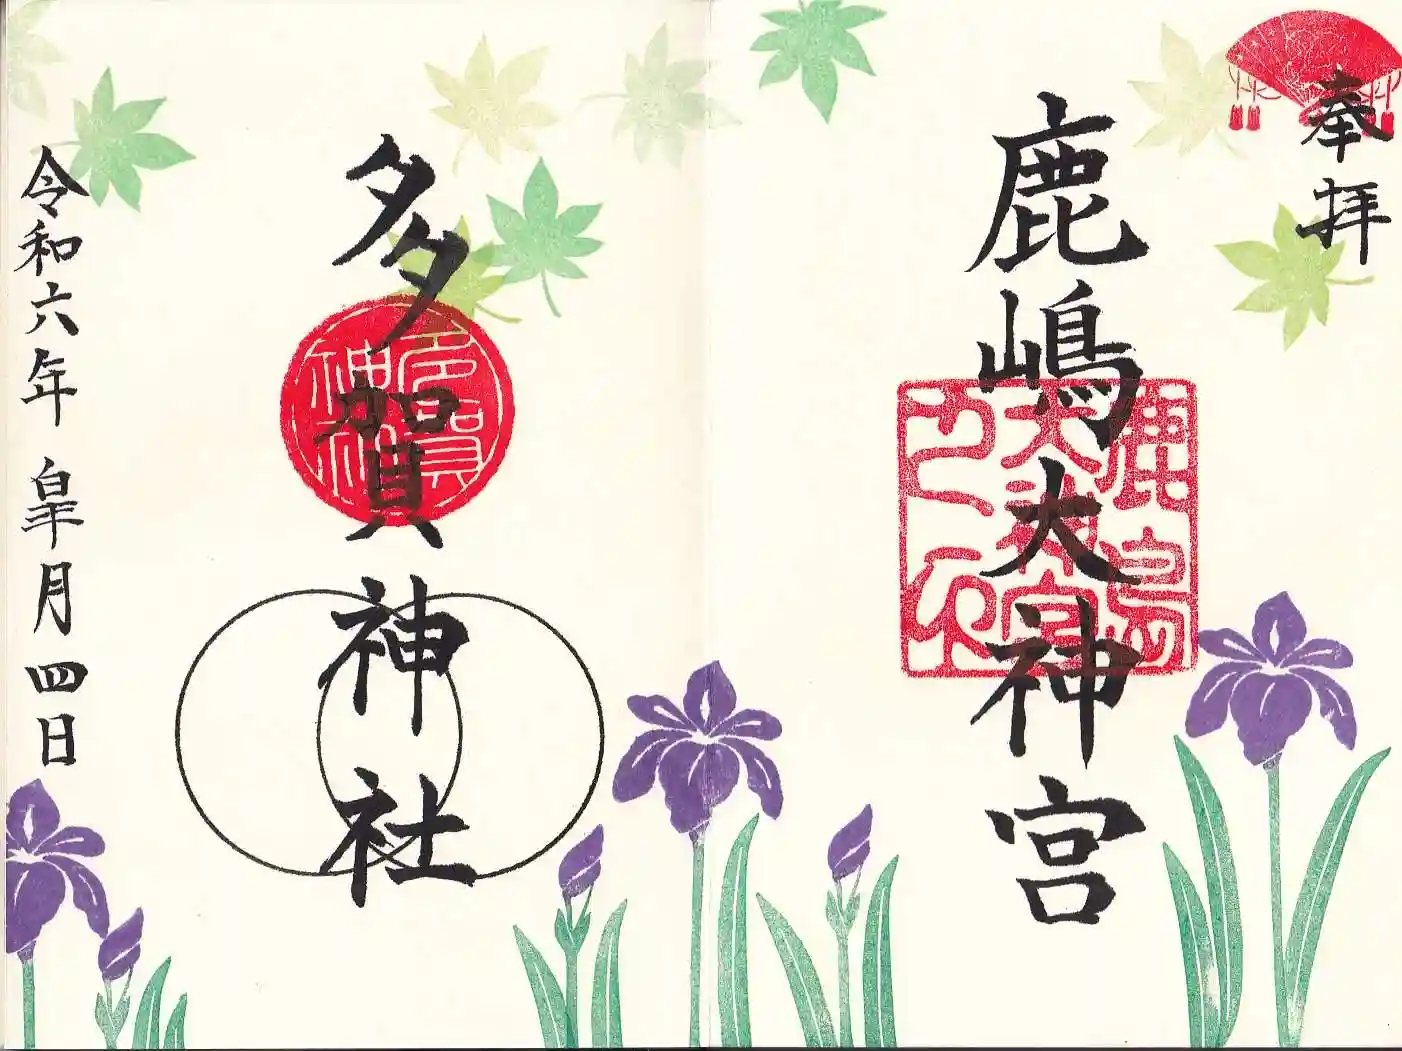 奉拝
鹿嶋大神宮
鹿島
大神宮
之印
多賀神社
多賀
神社
令和六年皐月四日